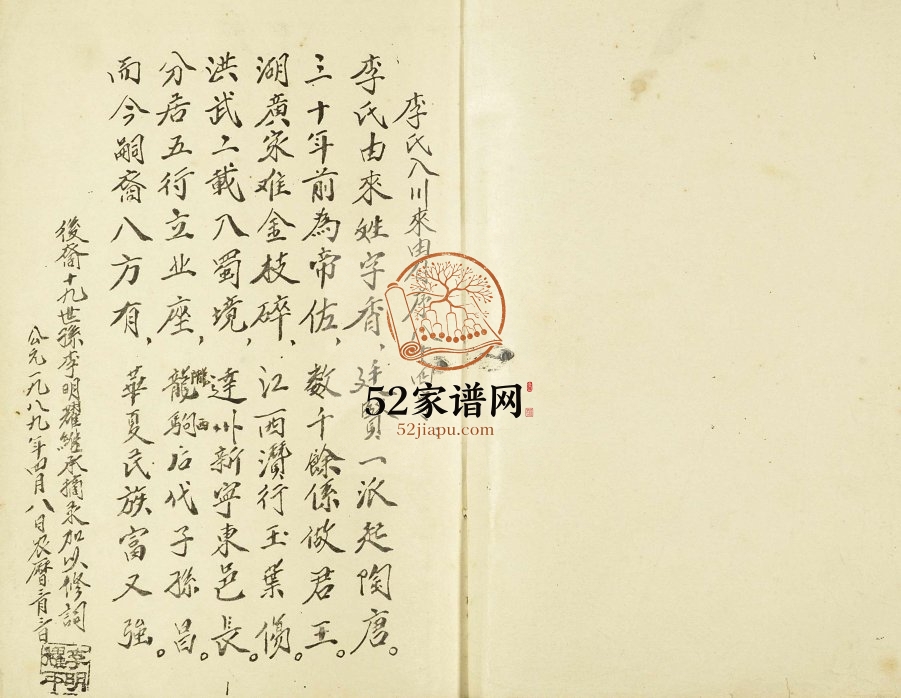 李氏入川來由
李氏由來姓字香,廷賢一派起陶唐。
三十年前為帝佐,数千餘係做君王。
湖廣家难金枝碎,江西濆行玉葉傷。
洪武二載入蜀境,達州新宁東邑長。
分居五行立业座,龍駒后代子孫昌。
隴西
而今嗣裔八方有,華夏民族富又強。
後裔十九世孫李明耀继承摘录加以修詞
公元一九八九年四月八日农曆三月三日
52家谱网
52jiapu.com